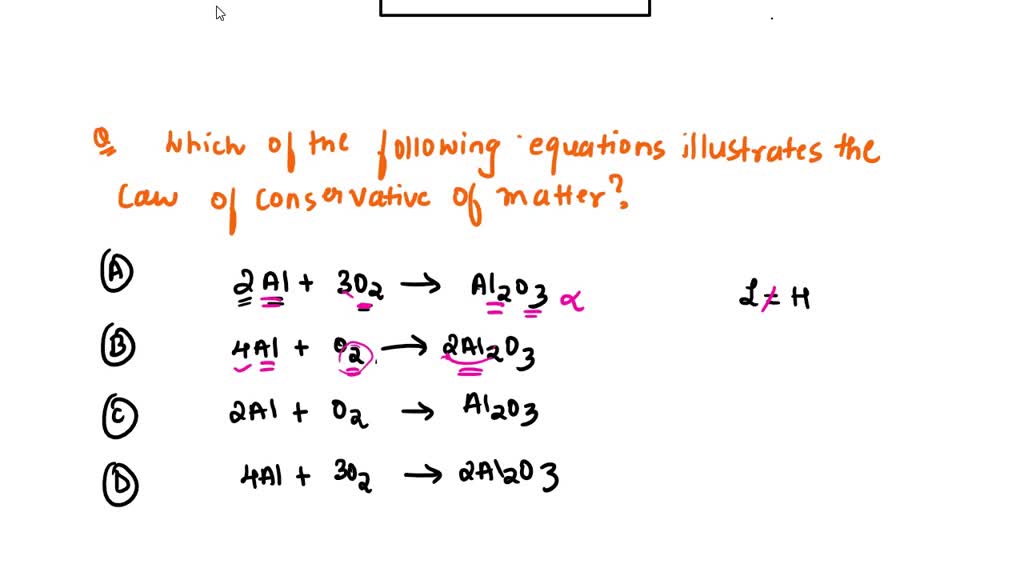 Q Which of the following equations illustrates the
Law of conservative of matter?
A 2Al + 3O2 → Al2O3 α
L ≠ H
B 4Al + O2 → 2Al2O3
C 2Al + O2 → Al2O3
D 4Al + 3O2 → 2Al2O3